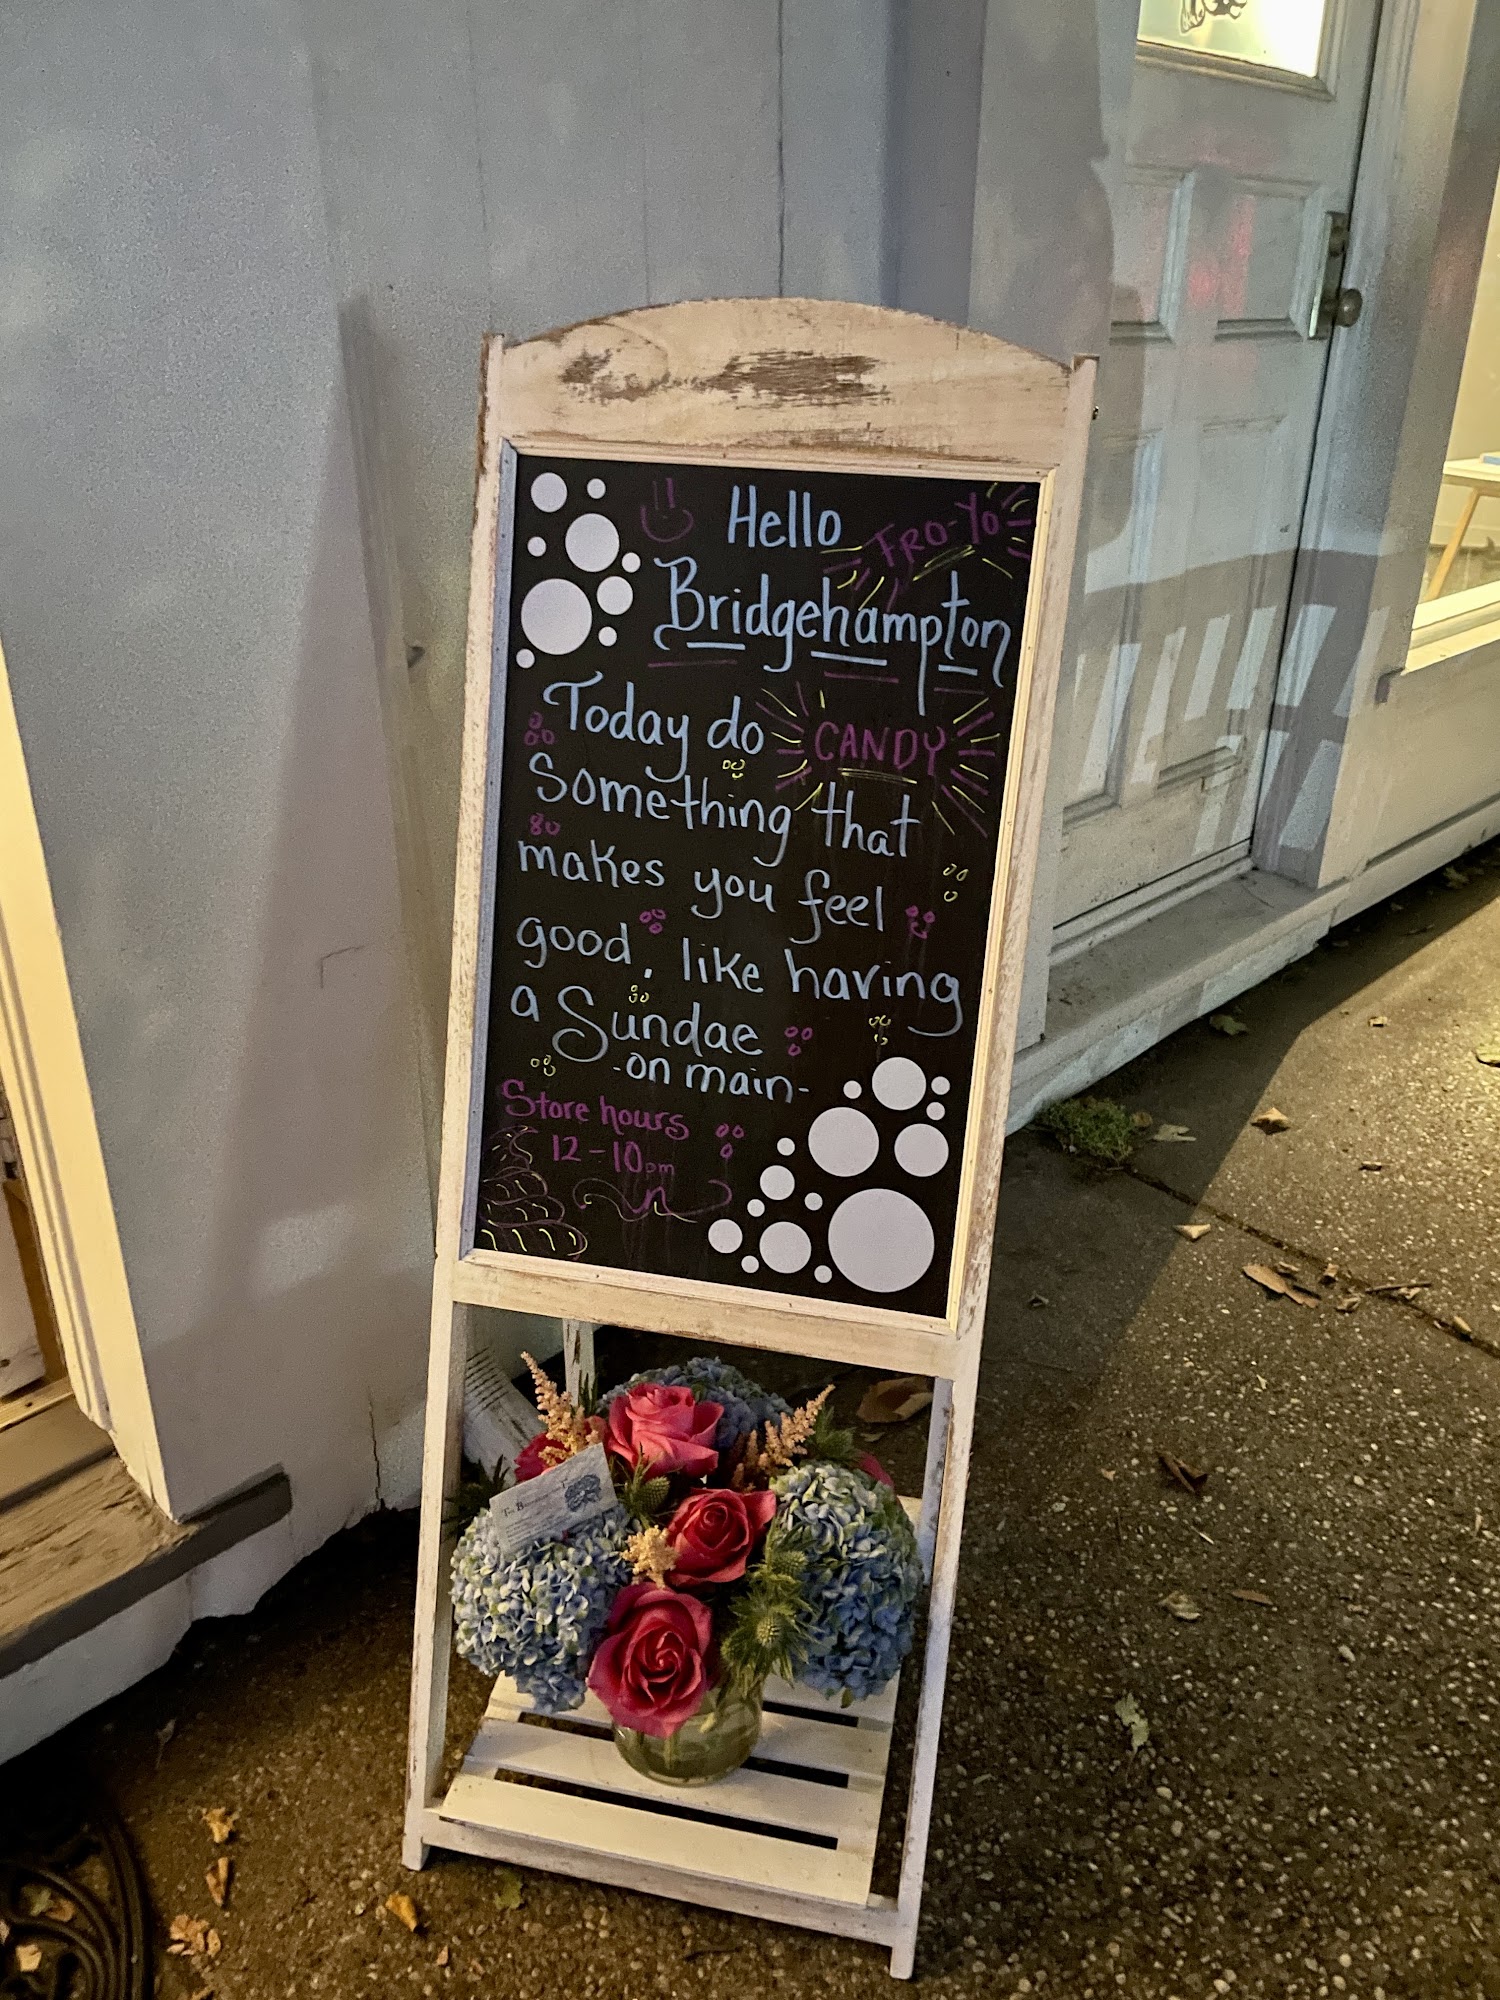 Hello
FRO-YO
Bridgehampton
Today do
CANDY
Something that
makes you feel
good, like having
a Sundae
-on main-
Store hours
12-10pm